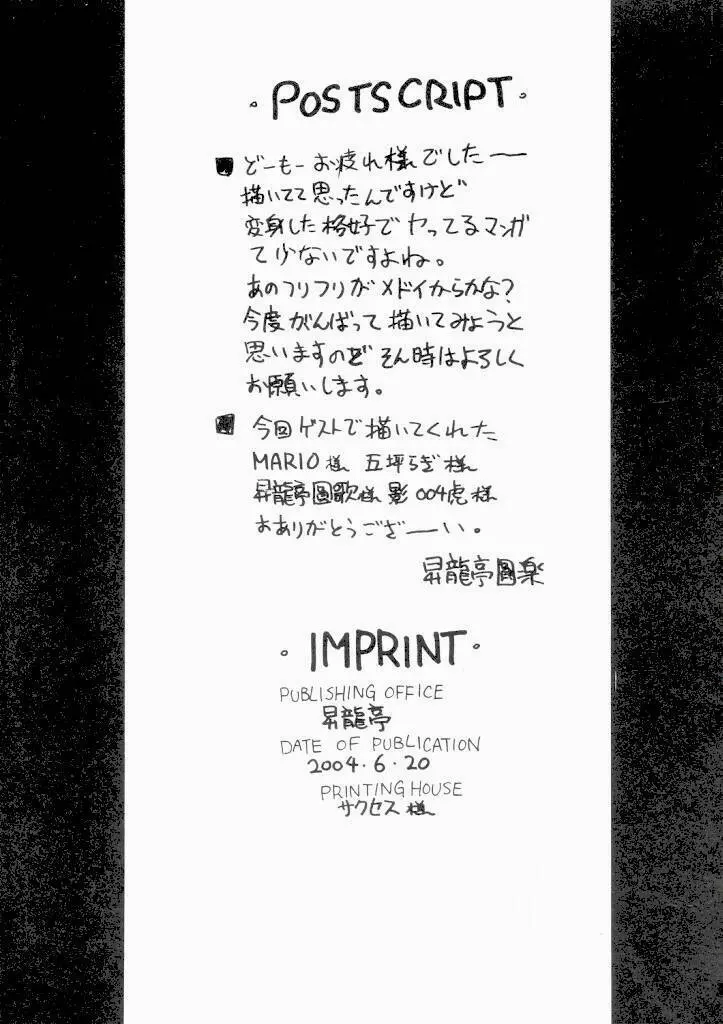 ・POSTSCRIPT・
■ どーもー お疲れ様でしたー
描いてて思ったんですけど
変身した格好でヤってるマンガ
て少ないですよね。
あのフリフリがメドイからかな?
今度がんばって描いてみようと
思いますのど そん時はよろしく
お願いします。
■ 今回ゲストで描いてくれた
MARIO様 五坪らぎ様
昇龍亭圓歌様 影004虎様
おありがとうござーい。
昇龍亭圓楽
・IMPRINT・
PUBLISHING OFFICE
昇龍亭
DATE OF PUBLICATION
2004・6・20
PRINTING HOUSE
サクセス様